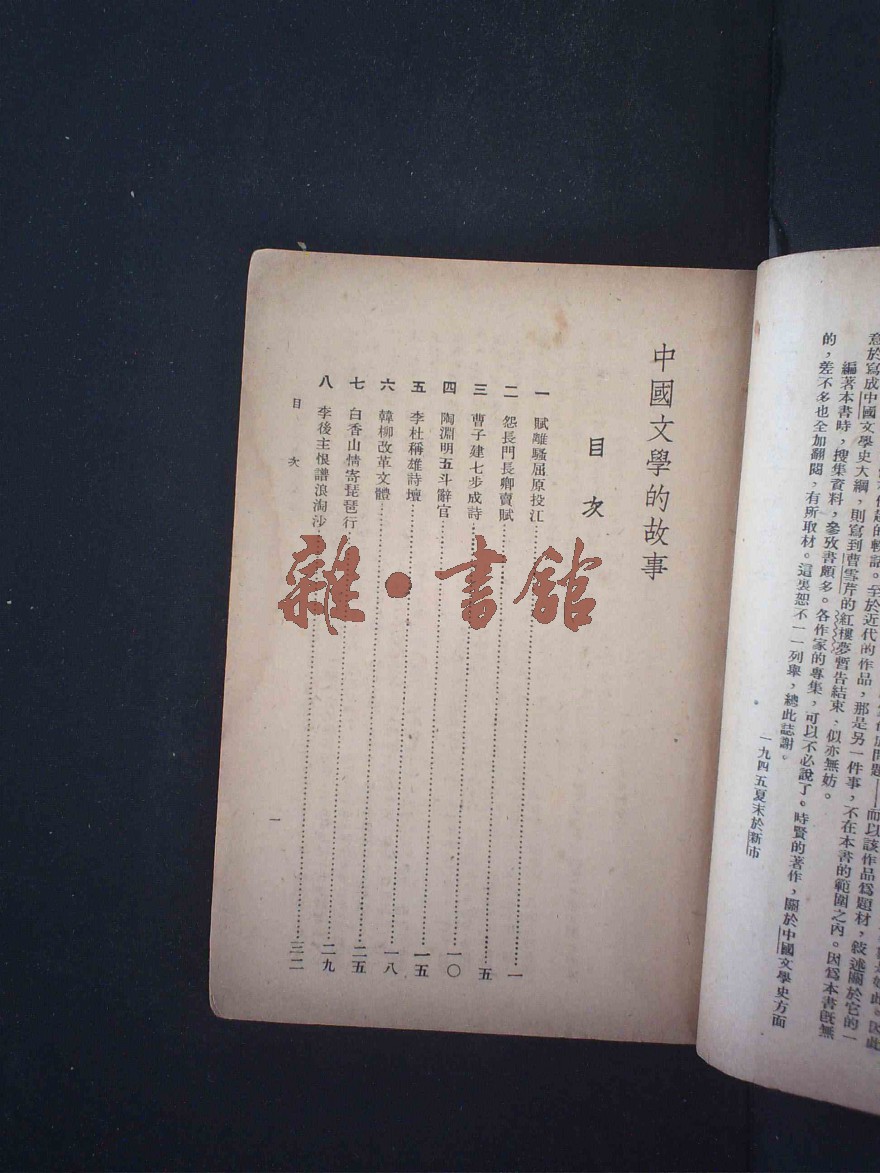 而以該作品爲題材，敍述關於它的一
的輕話。至於近代的作品，那是另一件事，不在本書的範圍之內。因爲本書旣無
意於寫成中國文學史大綱，則寫到曹雪芹的紅樓夢暫告結束、似亦無妨。
編著本書時，搜集資料，參攷書頗多。各作家的專集，可以不必說了。時賢的著作，關於中國文學史方面
的，差不多也全加翻閱，有所取材。這裏恕不一一列舉，總此誌謝。
一九四五夏末於新市
中國文學的故事
目次
一 賦離騷屈原投江……一
二 怨長門長卿賣賦……五
三 曹子建七步成詩……一〇
四 陶淵明五斗辭官……一五
五 李杜稱雄詩壇……一八
六 韓柳改革文體……二五
七 白香山情寄琵琶行……二九
八 李後主恨譜浪淘沙……三二
目次
一
雜·書館